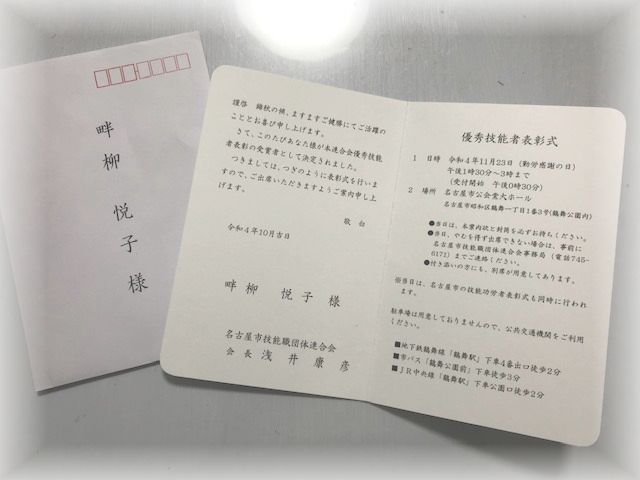 畔柳 悦子 様
謹啓 錦秋の候、ますますご健勝にてご活躍の
こととお喜び申し上げます。
さて、このたびあなた様が本連合会優秀技能
者表彰の受賞者として決定されました。
つきましては、つぎのように表彰式を行いま
すので、ご出席いただきますようご案内申し上
げます。
敬白
令和4年10月吉日
畔柳 悦子 様
名古屋市技能職団体連合会
会長 浅井康彦
優秀技能者表彰式
1 日時 令和4年11月23日(勤労感謝の日)
午後1時30分～3時まで
(受付開始 午後0時30分)
2 場所 名古屋市公会堂大ホール
名古屋市昭和区鶴舞一丁目1番3号(鶴舞公園内)
●当日は、本案内状と封筒を必ずお持ちください。
●当日、やむを得ず出席できない場合は、事前に
名古屋市技能職団体連合会事務局(電話745-
6171)までご連絡ください。
●付き添いの方にも、別席が用意してあります。
※当日は、名古屋市の技能功労者表彰式も同時に行われ
ます。
駐車場は用意しておりませんので、公共交通機関をご利用
ください。
■地下鉄鶴舞線「鶴舞駅」下車4番出口徒歩2分
■市バス「鶴舞公園前」下車徒歩3分
■JR中央線「鶴舞駅」下車公園出口徒歩2分